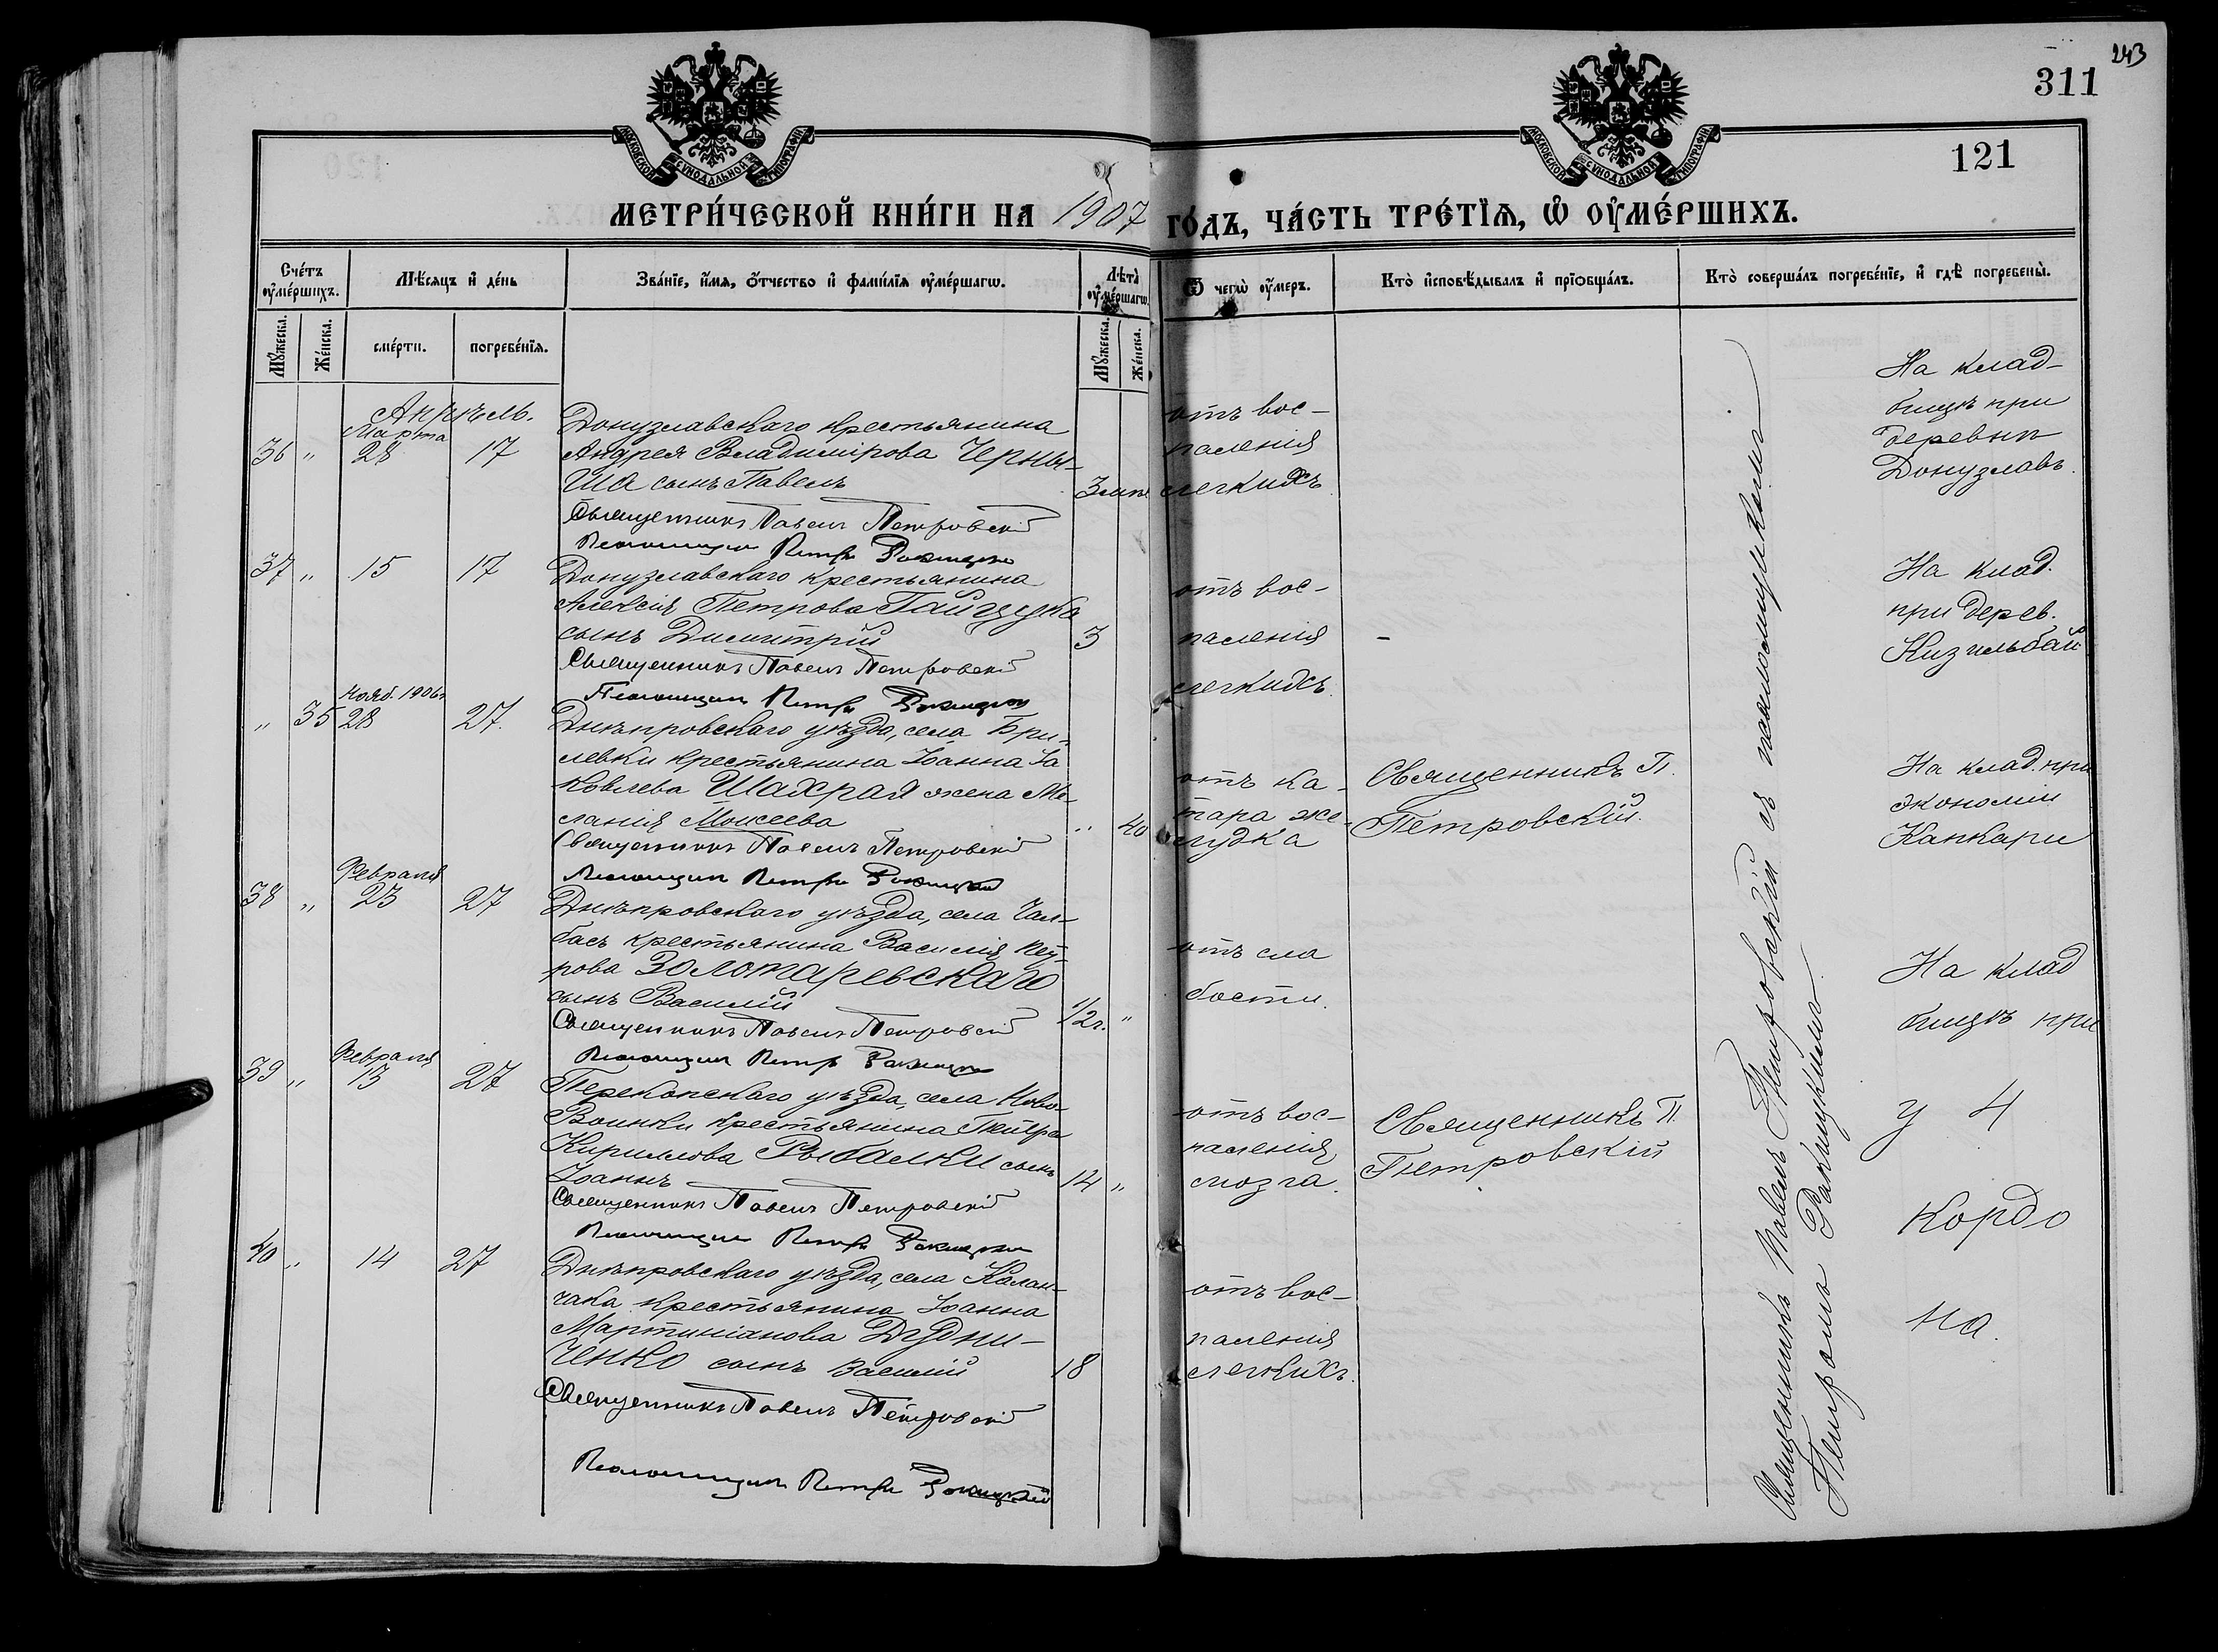 243
311
121
МОСКОВСКОЙ СУНОДАЛЬНОЙ ТИПОГРАФІИ
МОСКОВСКОЙ СУНОДАЛЬНОЙ ТИПОГРАФІИ
МЕТРИ́ЧЕСКОЙ КНИ́ГИ НА 1907 ГО́ДЪ, ЧА́СТЬ ТРЕ́ТІѦ, Ѡ ОУ҆МЕ́РШИХЪ.
Сче́тъ оу҆ме́ршихъ.
Мѣ́сяцъ и҆ де́нь
Зва́нїе, и҆́мя, ѻ҆́тчество и҆ фами́лїя оу҆ме́ршагѡ.
Лѣта̀ оу҆ме́ршагѡ.
Ѿ чегѡ̀ оу҆́меръ.
Кто̀ и҆сповѣ́дывалъ и҆ прїѡбща́лъ.
Кто̀ соверша́лъ погребе́нїе, и҆ гдѣ̀ погребены̀.
Му́жеска.
Же́нска.
сме́рти.
погребе́нїя.
Му́жеска.
Же́нска.
Апрѣль.
Марта
36 " 28 17
Донузлавскаго крестьянина
Андрея Владимірова Черны-
ша сынъ Павелъ
Священникъ Павелъ Петровскій
Псаломщикъ Петръ Рокицкій
отъ вос-
паленія
легкихъ
На клад-
бищѣ при
деревнѣ
Донузлавъ.
37 " 15 17
Донузлавскаго крестьянина
Алексія Петрова Гайдука
сынъ Димитрій 3
Священникъ Павелъ Петровскій
Псаломщикъ Петръ Рокицкій
отъ вос-
паленія -
легкихъ.
На клад.
при дерев.
Кизильбай
Нояб. 1906 г.
" 35 28 27.
Днѣпровскаго уѣзда, села Бри-
левки крестьянина Іоанна Іа
ковлева Шахрая жена Ме-
ланія Моисеева " 40
Священникъ Павелъ Петровскій
Псаломщикъ Петръ Рокицкій
отъ ка-
тара же-
лудка
Священникъ П.
Петровскій.
На клад. при
экономіи
Канкари
Февраля
38 " 23 27
Днѣпровскаго уѣзда, села Чал-
басъ крестьянина Василія Пет-
рова Золотаревскаго
сынъ Василій 1/2 г. "
Священникъ Павелъ Петровскій
Псаломщикъ Петръ Рокицкій
отъ сла
бости.
На клад
бищѣ при
Февраля
39 " 13 27
Перекопскаго уѣзда, села Ново-
Воинки крестьянина Петра
Кириллова Рыбалки сынъ
Іоаннъ 14 "
Священникъ Павелъ Петровскій
Псаломщикъ Петръ Рокицкій
отъ вос-
паленія
мозга.
Священникъ П.
Петровскій
Кордо
на.
40 " 14 27
Днѣпровскаго уѣзда, села Калан-
чака крестьянина Іоанна
Мартиніанова Дудни-
ченко сынъ Василій 18
Священникъ Павелъ Петровскій
Псаломщикъ Петръ Рокицкій
отъ вос-
паленія
легкихъ.
Священникъ Павелъ Петровскій съ псаломщикомъ
Петромъ Рокицкимъ.